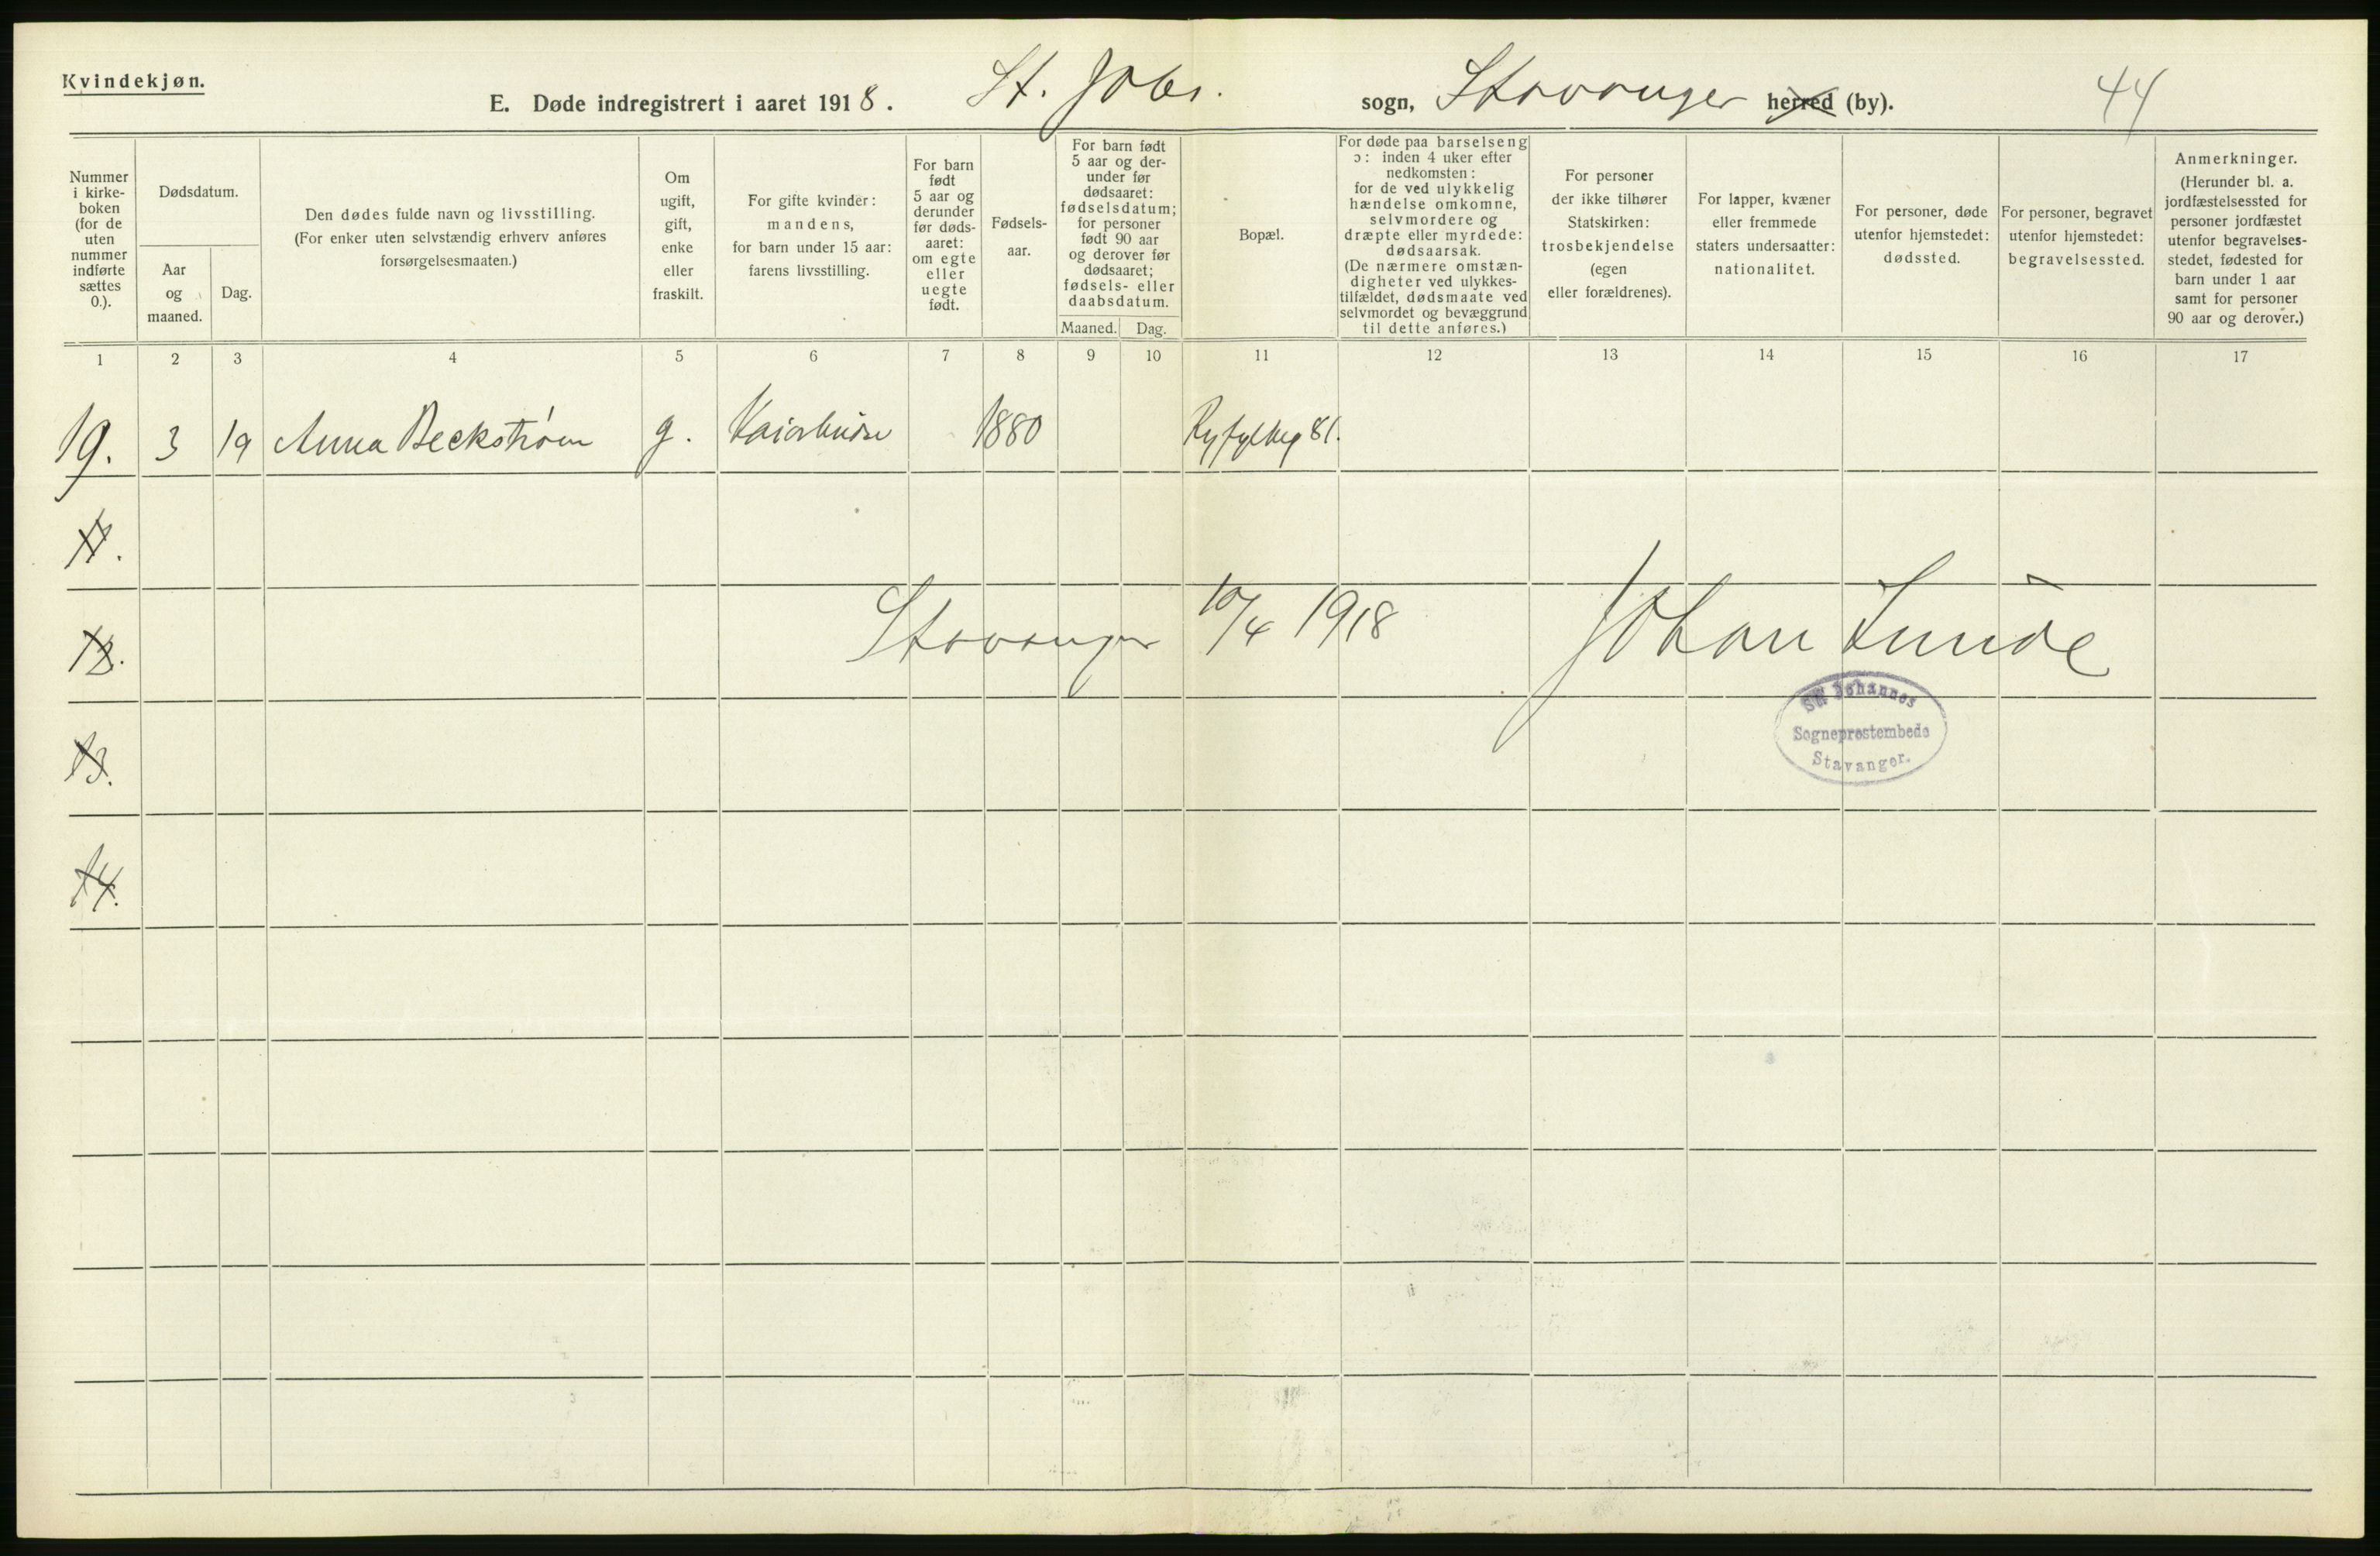 Kvindekjøn.
E. Døde indregistrert i aaret 1918. St. Johs. sogn, Stavanger herred (by). 44
Nummer
i kirke-
boken
(for de
uten
nummer
indførte
sættes
0.).
Dødsdatum.
Aar
og
maaned.
Dag.
Den dødes fulde navn og livsstilling.
(For enker uten selvstændig erhverv anføres
forsørgelsesmaaten.)
Om
ugift,
gift,
enke
eller
fraskilt.
For gifte kvinder:
mandens,
for barn under 15 aar:
farens livsstilling.
For barn
født
5 aar og
derunder
før døds-
aaret:
om egte
eller
uegte
født.
Fødsels-
aar.
For barn født
5 aar og der-
under før
dødsaaret:
fødselsdatum;
for personer
født 90 aar
og derover før
dødsaaret;
fødsels- eller
daabsdatum.
Maaned. Dag.
Bopæl.
For døde paa barselseng
ɔ: inden 4 uker efter
nedkomsten:
for de ved ulykkelig
hændelse omkomne,
selvmordere og
dræpte eller myrdede:
dødsaarsak.
(De nærmere omstæn-
digheter ved ulykkes-
tilfældet, dødsmaate ved
selvmordet og bevæggrund
til dette anføres.)
For personer
der ikke tilhører
Statskirken:
trosbekjendelse
(egen
eller forældrenes).
For lapper, kvæner
eller fremmede
staters undersaatter:
nationalitet.
For personer, døde
utenfor hjemstedet:
dødssted.
For personer, begravet
utenfor hjemstedet:
begravelsessted.
Anmerkninger.
(Herunder bl. a.
jordfæstelsessted for
personer jordfæstet
utenfor begravelses-
stedet, fødested for
barn under 1 aar
samt for personer
90 aar og derover.)
1 2 3 4 5 6 7 8 9 10 11 12 13 14 15 16 17
19. 3 19 Anna Beckstrøm g. 1880 Ryfylkeg 81.
11.
Stavanger 10/4 1918 Johan Lunde
12.
St. Johannes
Sogneprestembede
Stavanger.
13.
14.